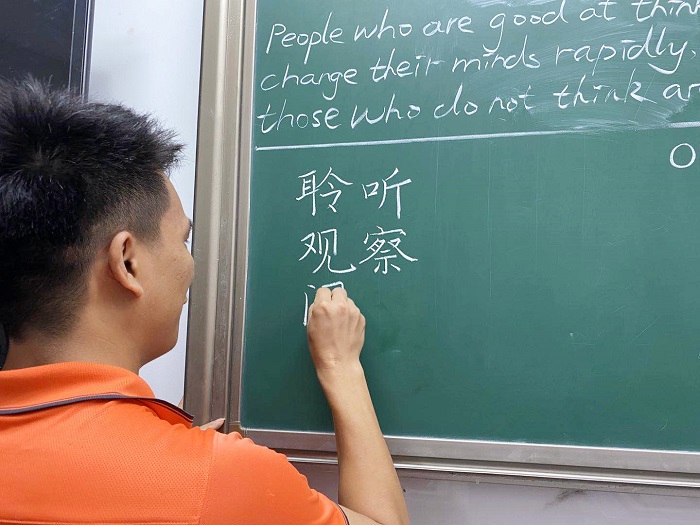 People who are good at
change their minds rapidly,
those who do not think
聆听
观察